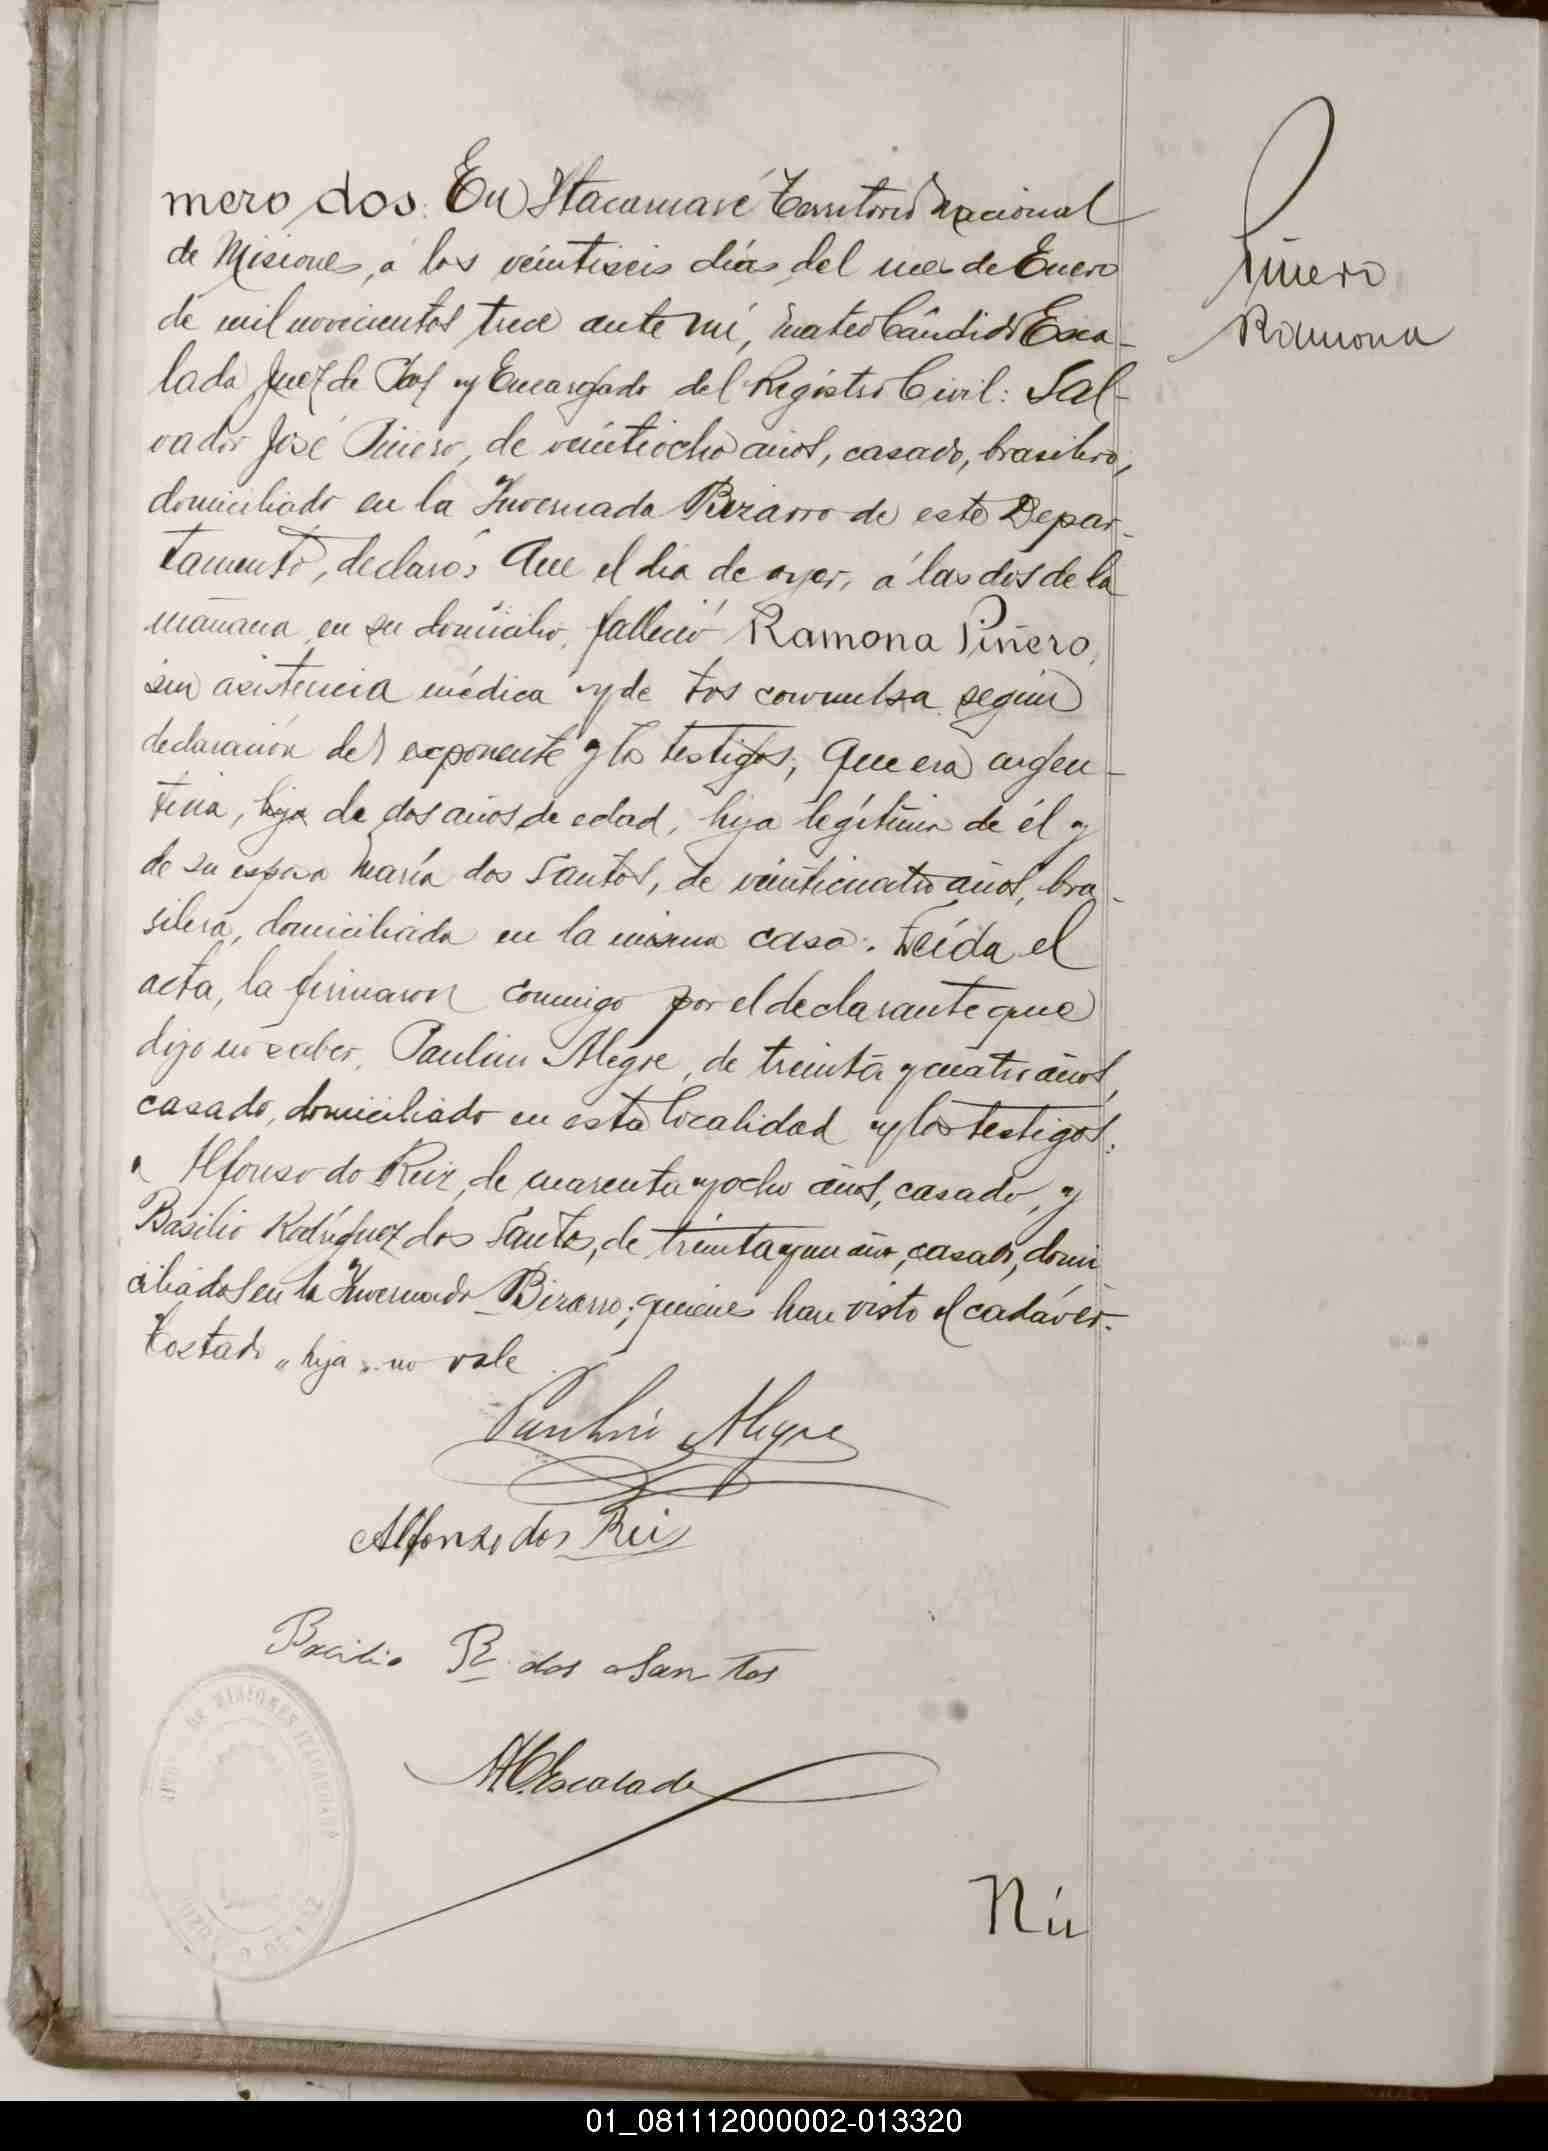 mero dos: En Itacaruaré Territorio Nacional
de Misiones, á los veintiseis días del mes de Enero
de mil novecientos trece ante mí, Mateo Cándido Esca-
lada Juez de Paz y Encargado del Registro Civil: Sal-
vador José Piñero, de veintiocho años, casado, brasilero,
domiciliado en la Invernada Bizarro de este Depar-
tamento, declaró: Que el dia de ayer, á las dos de la
mañana en su domicilio, falleció Ramona Piñero,
sin asistencia médica y de tos convulsa según
declaración del exponente y los testigos; Que era argen-
tina, hija de dos años de edad, hija legítima de él y
de su esposa María dos Santos, de veinticuatro años, bra-
silera, domiciliada en la misma casa. Leída el
acta, la firmaron conmigo por el declarante que
dijo no saber, Paulino Alegre, de treinta y cuatro años,
casado, domiciliado en esta localidad y los testigos:
Alfonso do Reis, de cuarenta y ocho años, casado, y
Basilio Rodríguez dos Santos, de treinta y un año, casado, domi
ciliados en la Invernada Bizarro; quienes han visto el cadáver.
Testado "hija" no vale
Paulino Alegre
Alfonso dos Reis
Bacilio R. dos Santos
M.C. Escalada
Nú
Piñero
Ramona
DE MISIONES
01_081112000002-013320